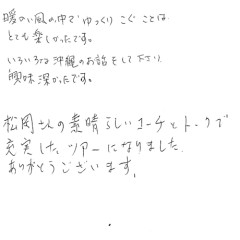 暖かい風の中でゆっくりこぐことは
とても楽しかったです。
いろいろな沖縄のお話をして下さり
興味深かったです。
松岡さんの素晴らしいコーチとトークで
充実したツアーになりました
ありがとうございます。